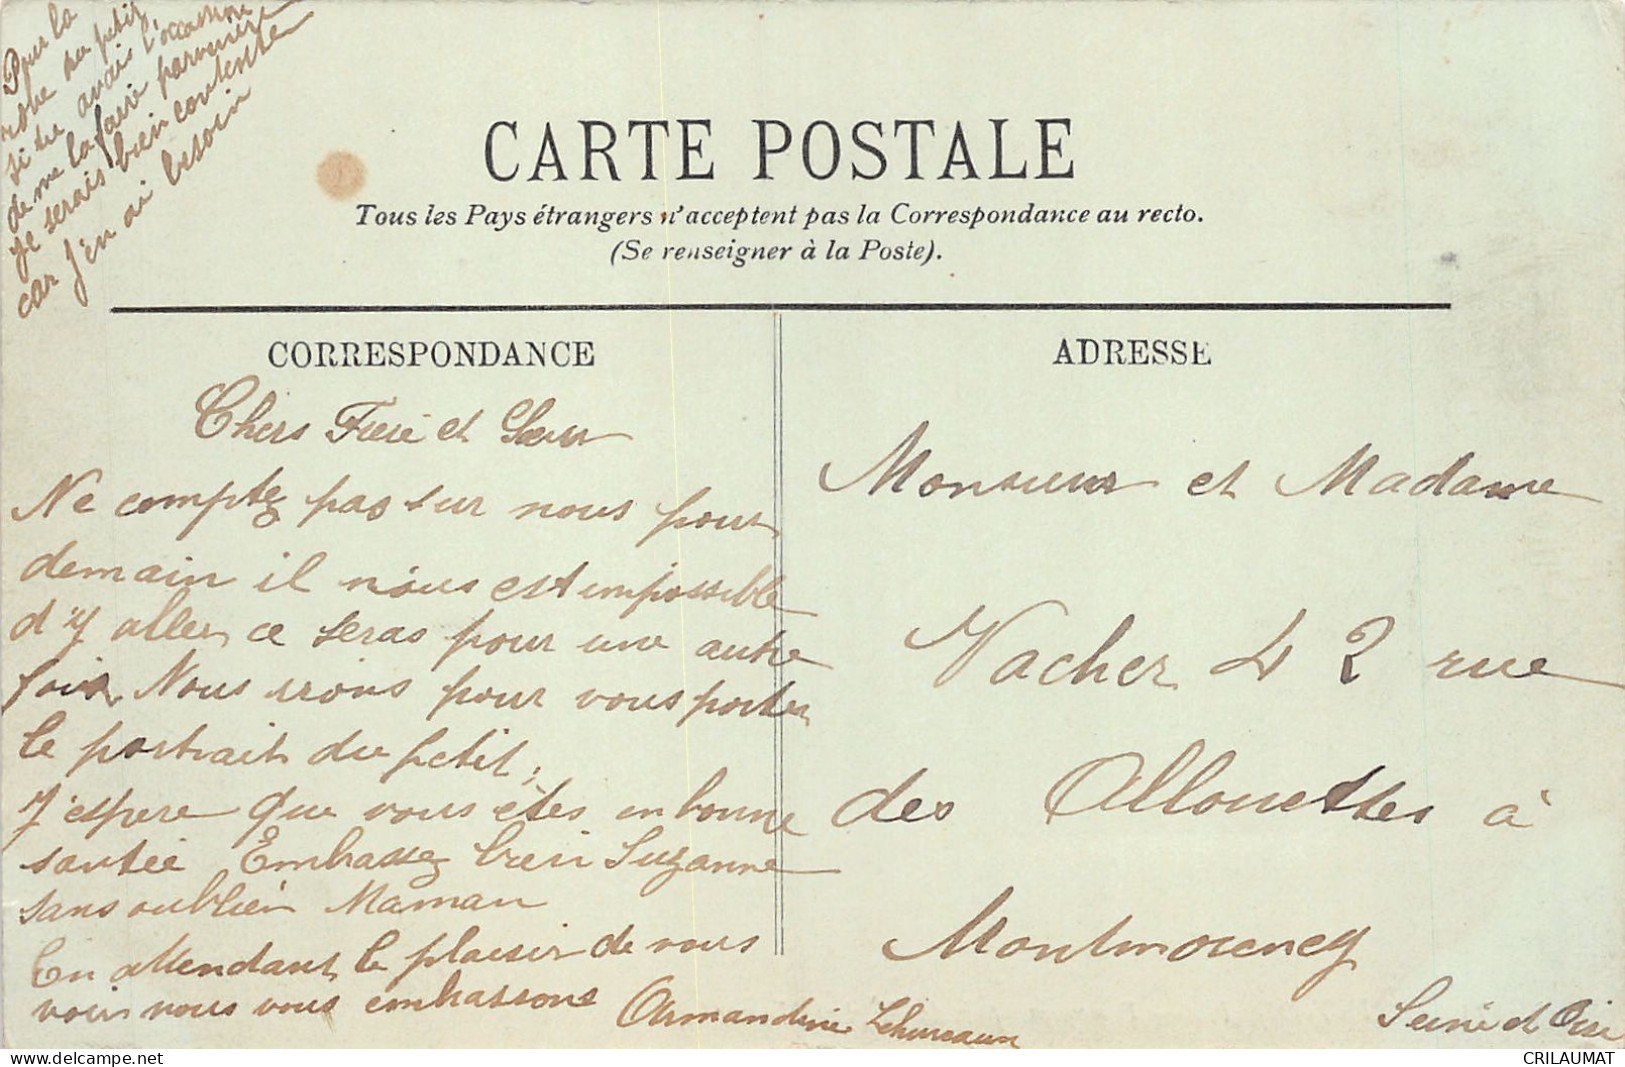 Pour la
robe du petit
si tu avais l'occasion
de me la faire parvenir
je serais bien contente
car j'en ai besoin
CARTE POSTALE
Tous les Pays étrangers n'acceptent pas la Correspondance au recto.
(Se renseigner à la Poste).
CORRESPONDANCE
Chers Frere et Sœur
Ne comptez pas sur nous pour
demain il nous est impossible
d'y aller ce seras pour une autre
fois. Nous irons pour vous porter
le portrait du petit.
J'espere que vous êtes en bonne
santée Embrassez bien Suzanne
sans oublier Maman
En attendant le plaisir de vous
voir nous vous embrassons
Armandine
ADRESSE
Monsieur et Madame
Vacher 42 rue
des Allouettes à
Montmorency
Seine et Oise
CRILAUMAT